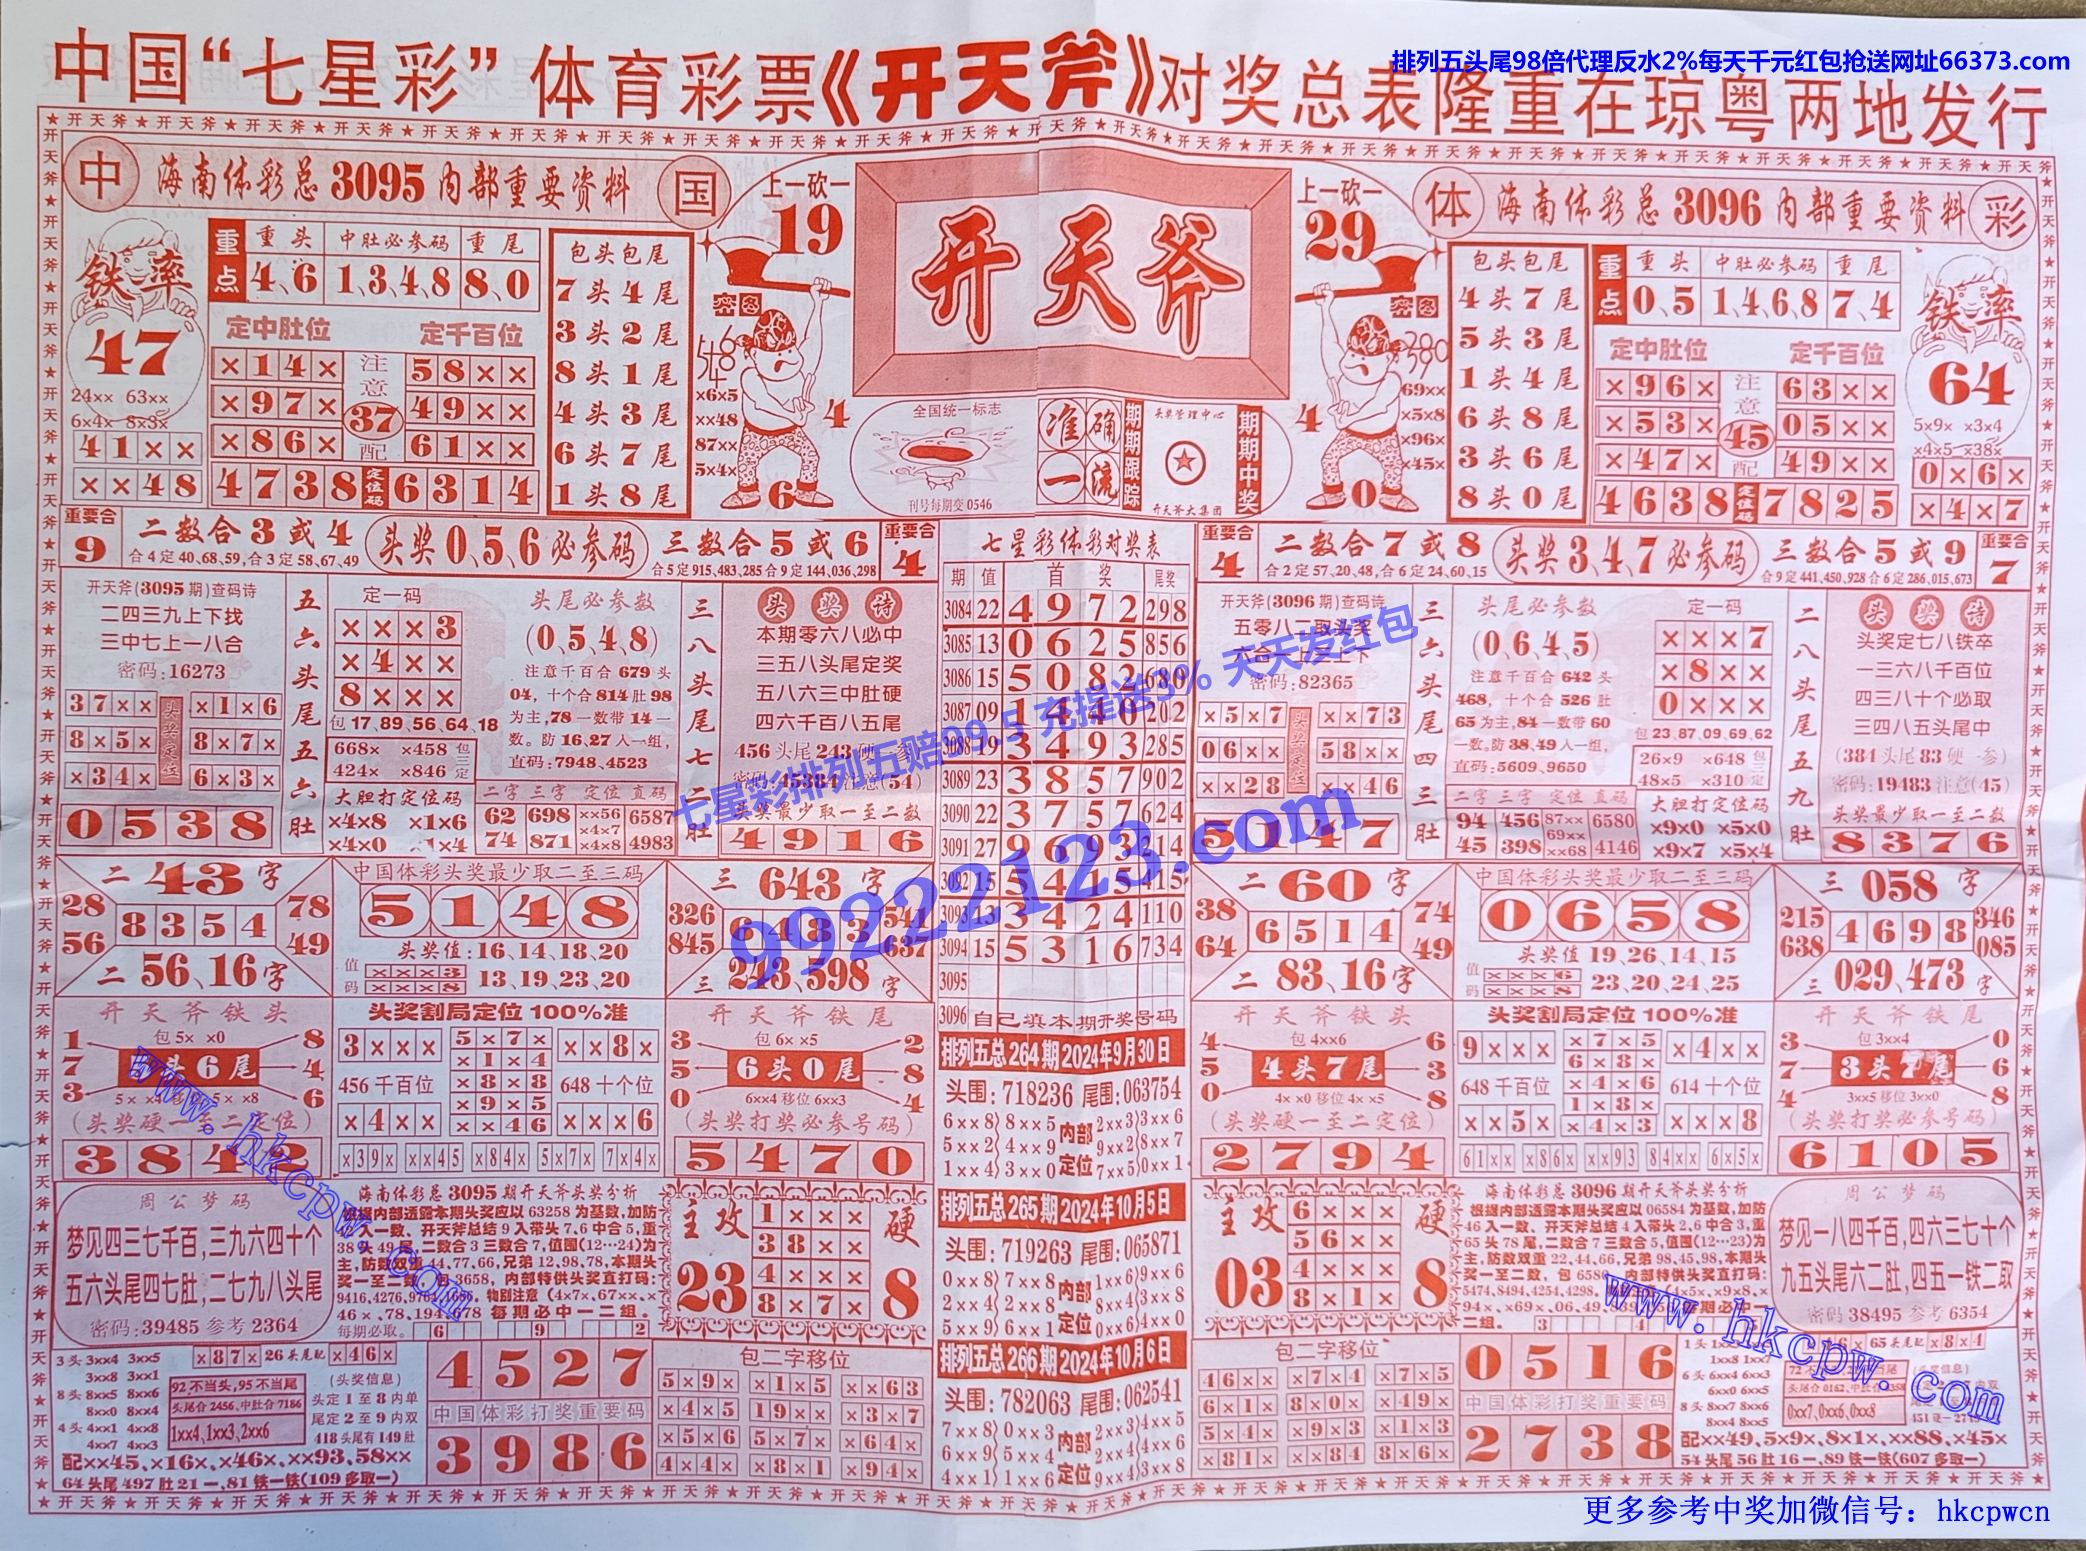 排列五头尾98倍代理反水2%每天千元红包抢送网址66373.com
中国“七星彩”体育彩票《开天斧》对奖总表隆重在琼粤两地发行
中 海南体彩总3095内部重要资料 国
上一砍一
19
开天斧
上一砍一
29
体 海南体彩总3096内部重要资料 彩
铁率
47
24×× 63××
6×4× 8×3×
41××
××48
重点
重头 中肚必参码 重尾
4、6 1、3、4、8 8、0
定中肚位 定千百位
×14× 58××
×97× 49××
×86× 61××
注意 37 配
4738 定位码 6314
包头包尾
7头4尾
3头2尾
8头1尾
4头3尾
6头7尾
1头8尾
密图
×6×5
××48
87××
5×4×
4
6
全国统一标志
刊号每期变0546
准确一流
期期跟踪
头奖管理中心
开天斧大集团
期期中奖
密图
69××
×5×8
×96×
×45×
4
0
包头包尾
4头7尾
5头3尾
1头4尾
6头8尾
3头6尾
8头0尾
重点
重头 中肚必参码 重尾
0、5 1、4、6、8 7、4
定中肚位 定千百位
×96× 63××
×53× 05××
×47× 49××
注意 45 配
4638 定位码 7825
铁率
64
5×9× ×3×4
×4×5 ×38×
0×6×
×4×7
重要合 9
二数合3或4
合4定40,68,59,合3定58,67,49
头奖0、5、6必参码
三数合5或6
合5定915,483,285合9定144,036,298
重要合 4
七星彩体彩对奖表
期 值 首奖 尾奖
3084 22 4972 298
3085 13 0625 856
3086 15 5082 680
3087 09 1440 202
3088 19 3493 285
3089 23 3857 902
3090 22 3757 624
3091 27 9693 314
3092 15 5415 415
3093 13 3424 110
3094 15 5316 734
3095
3096 自己填本期开奖号码
重要合 4
二数合7或8
合2定57,20,48,合6定24,60,15
头奖3、4、7必参码
三数合5或9
合9定441,450,928合6定286,015,673
重要合 7
开天斧(3095期)查码诗
二四三九上下找
三中七上一八合
密码:16273
37×× ×1×6
8×5× 8×7×
×34× 6×3×
头奖定位
0538
五六头尾五六肚
定一码
×××3
×4××
8×××
包17,89,56,64,18
668× ×458
424× ×846
包三定
大胆打定位码
×4×8 ×1×6
头尾必参数
(0、5、4、8)
注意千百合679头
04,十个合814肚98
为主,78一数带14一
数。防16,27入一组,
直码:7948、4523
二字 三字 定位 直码
62 698 ××56 6587
74 871 ×4×7 ×4×8 4983
三八头尾七二肚
头奖诗
本期零六八必中
三五八头尾定奖
五八六三中肚硬
四六千百八五尾
456头尾243硬一参
密码:45384注意(54)
头奖最少取一至二数
4916
开天斧(3096期)查码诗
五零八二取头奖
六合一上三上下
密码:82365
×5×7 ××73
06×× 58××
××28 ××46
头奖定位
5147
三六头尾四三肚
头尾必参数
(0、6、4、5)
注意千百合642头
468,十个合526肚
65为主,84一数带60
一数。防38,49入一组,
直码:5609、9650
二字 三字 定位 直码
94 456 87×× 69×× 6580
45 398 ××68 4146
定一码
×××7
×8××
0×××
包23,87,09,69,62
26×9 ×648
48×5 ×310
包三定
大胆打定位码
×9×0 ×5×0
×9×7 ×5×4
二八头尾五九肚
头奖诗
头奖定七八铁卒
一三六八千百位
四三八十个必取
三四八五头尾中
(384头尾83硬一参)
密码:19483注意(45)
头奖最少取一至二数
8376
七星彩排列五赔99.5 充提送3% 天天发红包
99222123.com
二43字
28 78
8354
56 49
二56、16字
中国体彩头奖最少取二至三码
5148
头奖值:16、14、18、20
值码 ×××3 ×××8 13、19、23、20
三643字
326 541
6483
845 637
三243、598字
二60字
38 74
6514
64 49
二83、16字
中国体彩头奖最少取二至三码
0658
头奖值19、26、14、15
值码 ×××6 ×××8 23、20、24、25
三058字
215 346
4698
638 085
三029、473字
开天斧铁头
包5× ×0
1 7 3
8 4 6
头6尾
(头奖硬一至二定位)
384
头奖割局定位100%准
3××× 5×7× ××8×
×1×4
456千百位 ×8×8 648十个位
×9×5
×4×× ××46 ×××6
×39× ××45 ×84× 5×7× 7×4×
开天斧铁尾
包6× ×5
3 5 0
2 8 4
6头0尾
6××4移位6××3
(头奖打奖必参号码)
5470
开天斧铁头
包4××6
4 5 0
6 3 8
4头7尾
4× ×0移位4× ×5
(头奖硬一至二定位)
2794
头奖割局定位100%准
9××× ×7×5 ×4××
6×8×
648千百位 ×4×6 614十个位
1×8×
××5× ×4×3 ×××8
61×× ×86× ××93 84×× 6×5×
开天斧铁尾
包3××4
0 7 4
0 6 8
3头7尾
3××5移位3××0
(头奖打奖必参号码)
6105
排列五总264期2024年9月30日
头围:718236 尾围:063754
6××8 8××5 内部 2××3 3××6
5××2 4××9 9××2 8××7
1××4 3××0 定位 7××5 0××1
排列五总265期2024年10月5日
头围:719263 尾围:065871
0××8 7××8 内部 1××6 9××6
2××4 2××8 8××4 3××8
5××9 6××1 定位 0××6 4××0
排列五总266期2024年10月6日
头围:782063 尾围:062541
7××8 0××3 内部 2××3 4××5
6××9 5××4 2××4 4××6
4××1 1××6 定位 9××4 3××8
周公梦码
梦见四三七千百,三九六四十个
五六头尾四七肚,二七九八头尾
密码:39485参考2364
海南体彩总3095期开天斧头奖分析
根据内部透露本期头奖应以63258为基数,加防
入一数、开天斧总结9入带头7,6中合5,重
38头49尾,二数合3三数合7,值围(12…24)为
主,防数双重44,77,66,兄弟12,98,78,本期头
奖一至二数,包3658,内部特供头奖直打码:
46×,78,194,678每期必中一二组。
每期必取。 6 9 2
主攻 23
1×××
38××
4×××
8×7×
硬 8
主攻 03
6×××
56××
4×××
8×1×
硬 8
海南体彩总3096期开天斧头奖分析
根据内部透露本期头奖应以06584为基数,加防
46入一数、开天斧总结4入带头2,6中合3,重
65头78尾,二数合7三数合5,值围(12…23)为
主,防数双重22,44,66,兄弟98,45,98,本期头
周公梦码
梦见一八四千百,四六三七十个
九五头尾六二肚,四五一铁二取
密码38495参考6354
3头3××4 3××5
3××8 3××1
8头8××5 8××6
8××0 8××4
4头4××1 4××8
4××7 4××3
×87×26头尾配×46×
92,不当头,95不当尾
头尾合2456,中肚合7186
1××4,1××3,2××6
(头奖信息)
头定1至8内单
尾定2至9内双
418头尾有149肚
配××45、×16×、×46×、××93,58××
64头尾497肚21一、81铁一铁(109多取一)
4527
中国体彩打奖重要码
3986
包二字移位
5×9× ×1×5 ××63
×4×5 19×× ×3×7
×5×6 5×7× ×64×
4×4× ×8×1 ×94×
包二字移位
46×× ×7×4 ×7×5
6×1× 8×0× ×49×
×5×4 ×31× 6×4×
×81× ××84 8×6×
0516
中国体彩打奖重要码
2738
6头6××4 6××3
6××0 6××5
8头8××7 8××6
8××4 8××5
65头尾配×8×4
0××7,0××6,0××8
配××49、5×9×、8×1×、××88、×45×
54头尾56肚16一、89铁一铁(607多取一)
www.hkcpw.com
www.hkcpw.com
更多参考中奖加微信号：hkcpwcn